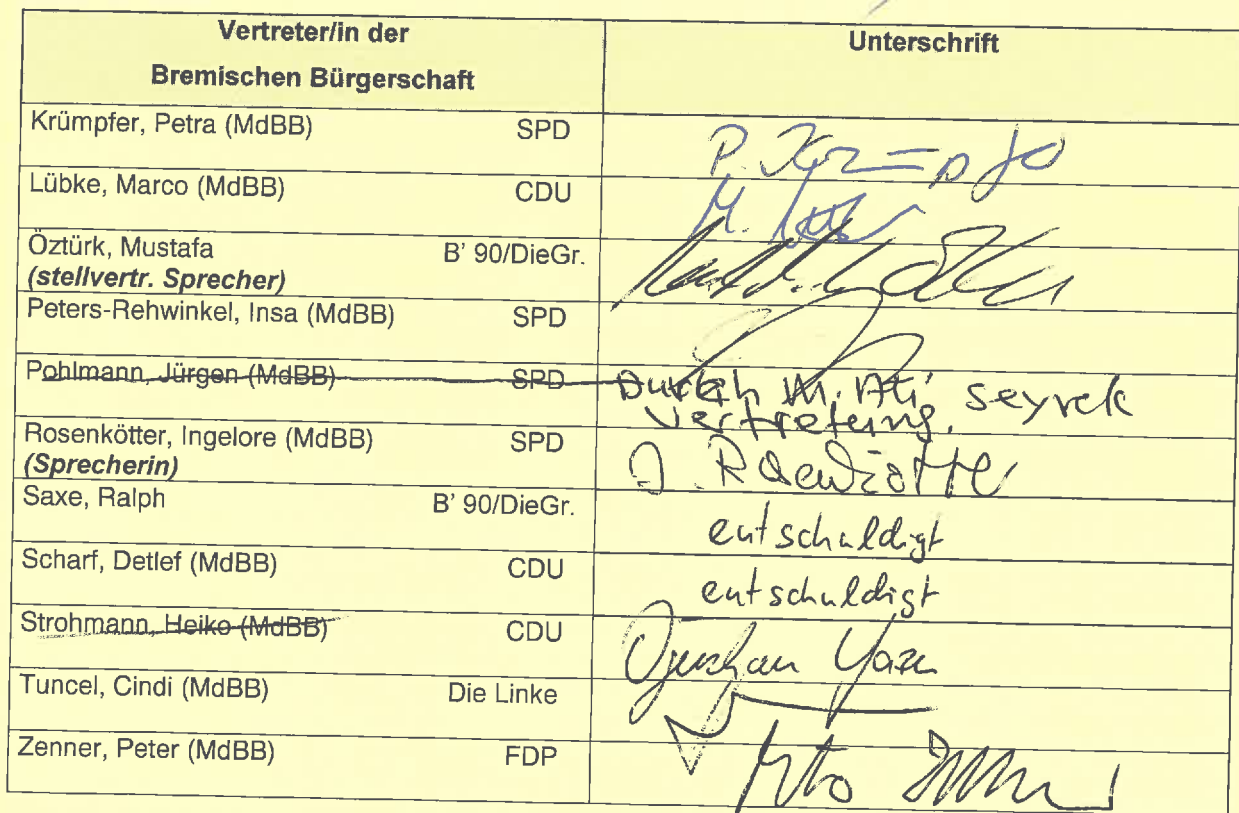 Vertreter/in der
Bremischen Bürgerschaft
Unterschrift
Krümpfer, Petra (MdBB) SPD
P.
Lübke, Marco (MdBB) CDU
M.
Öztürk, Mustafa B' 90/DieGr.
(stellvertr. Sprecher)
Peters-Rehwinkel, Insa (MdBB) SPD
Pohlmann, Jürgen (MdBB) SPD
Durch M. Ali Seyrek
Vertretung.
Rosenkötter, Ingelore (MdBB) SPD
(Sprecherin)
Saxe, Ralph B' 90/DieGr.
entschuldigt
Scharf, Detlef (MdBB) CDU
entschuldigt
Strohmann, Heiko (MdBB) CDU
Oguzhan Yazici
Tuncel, Cindi (MdBB) Die Linke
Zenner, Peter (MdBB) FDP